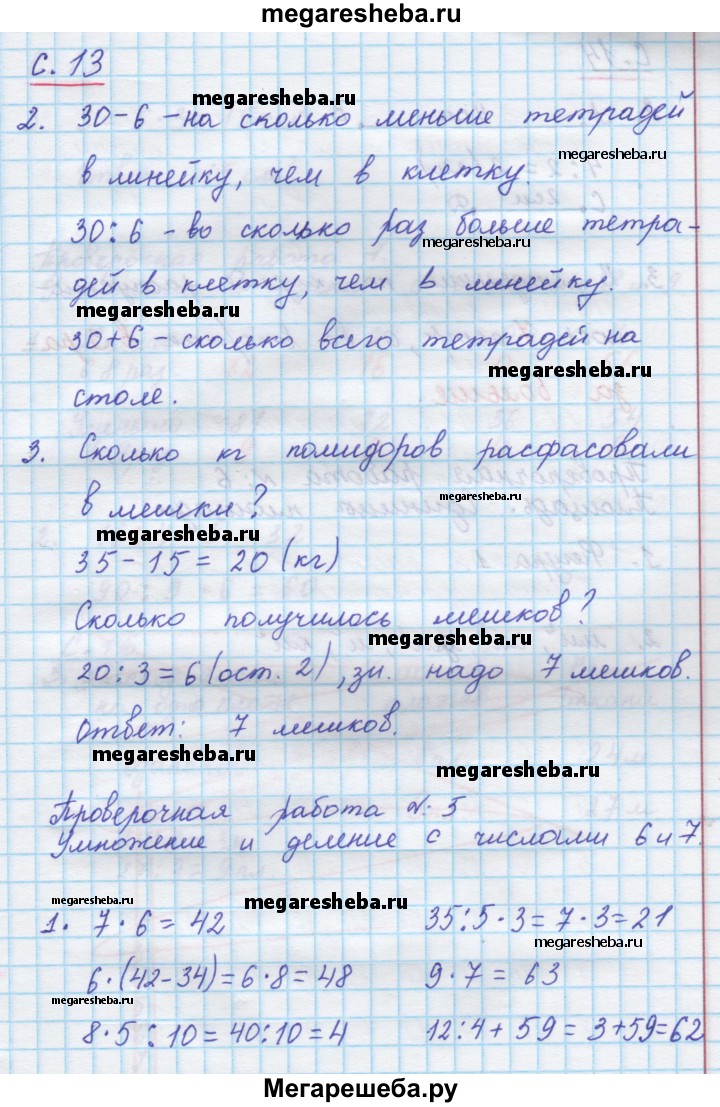 megaresheba.ru
с. 13
megaresheba.ru
2. 30-6 - на сколько меньше тетрадей
megaresheba.ru
в линейку, чем в клетку.
30:6 - во сколько раз больше тетра-
megaresheba.ru
дей в клетку, чем в линейку.
megaresheba.ru
30+6 - сколько всего тетрадей на
megaresheba.ru
столе.
3. Сколько кг помидоров расфасовали
megaresheba.ru
megaresheba.ru
в мешки?
megaresheba.ru
35-15=20 (кг)
Сколько получилось мешков?
megaresheba.ru
20:3=6 (ост. 2), зн. надо 7 мешков.
Ответ: 7 мешков.
megaresheba.ru
megaresheba.ru
Проверочная работа № 5
Умножение и деление с числами 6 и 7.
megaresheba.ru
megaresheba.ru
1. 7·6=42 35:5·3=7·3=21
megaresheba.ru
6·(42-34)=6·8=48 9·7=63
megaresheba.ru
megaresheba.ru
8·5:10=40:10=4 12:4+59=3+59=62
Мегарешеба.ру